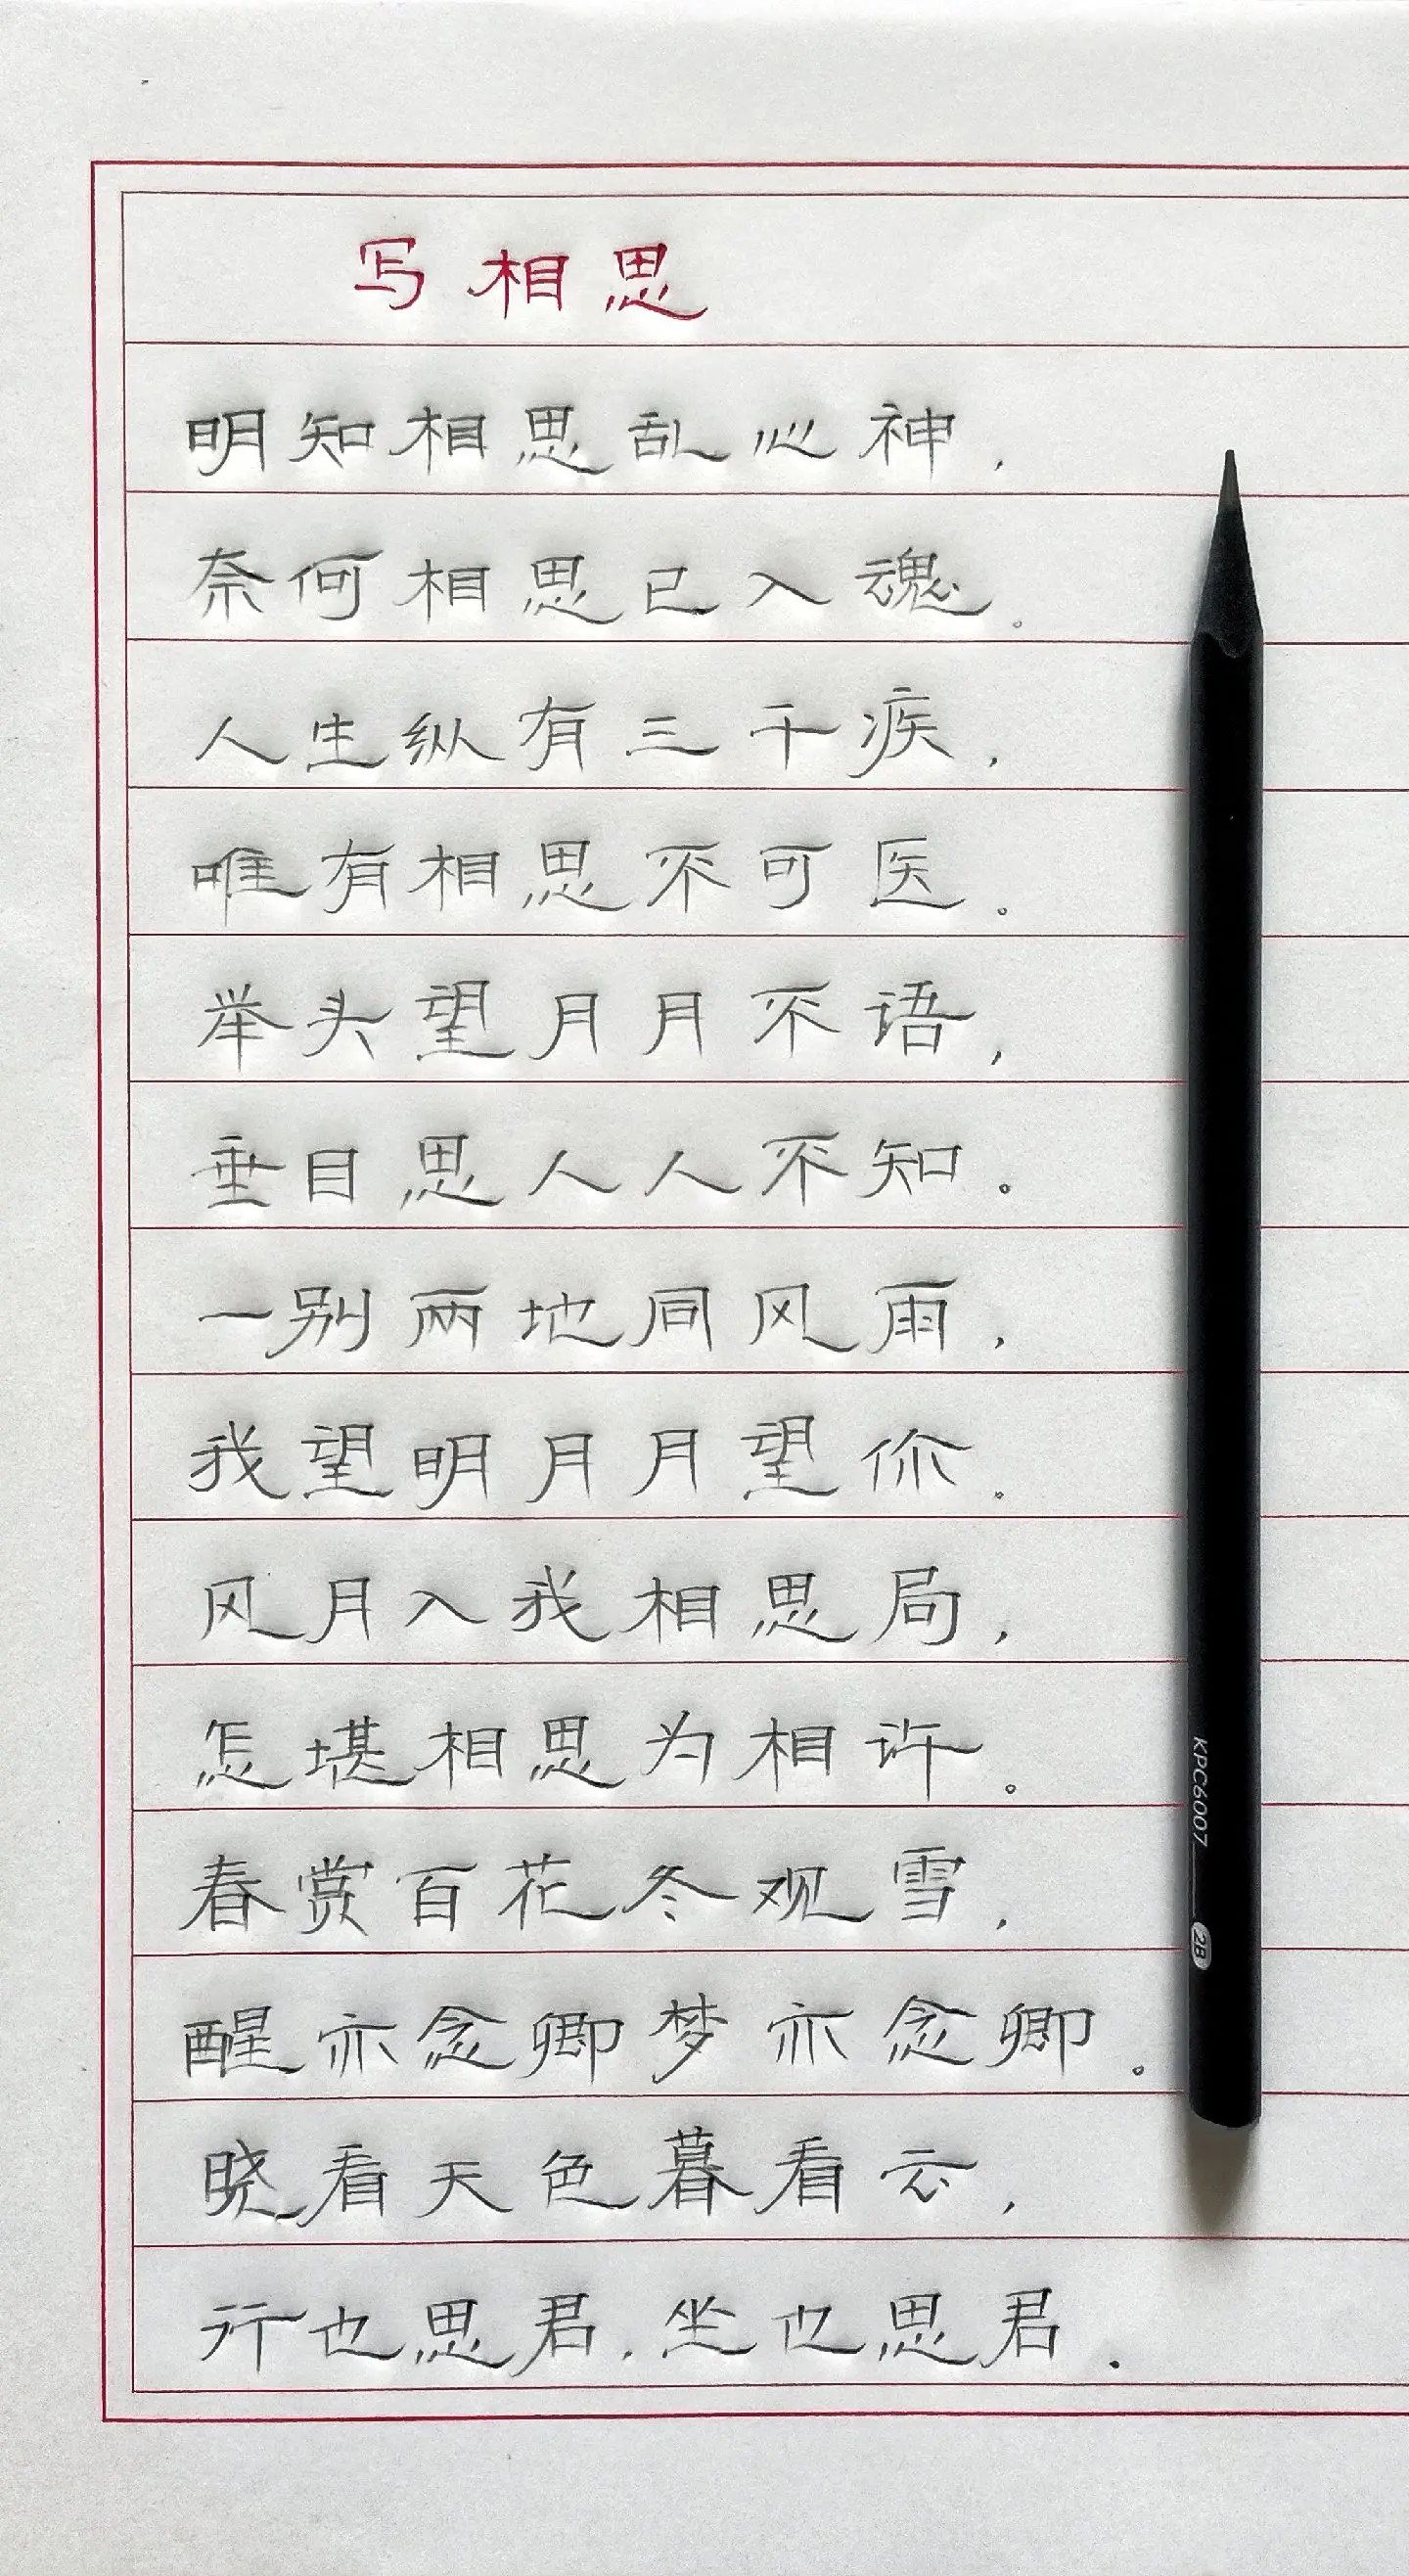 写相思
明知相思乱心神，
奈何相思已入魂。
人生纵有三千疾，
唯有相思不可医。
举头望月月不语，
垂目思人人不知。
一别两地同风雨，
我望明月月望你。
风月入我相思局，
怎堪相思为相许。
春赏百花冬观雪，
醒亦念卿梦亦念卿。
晓看天色暮看云，
行也思君，坐也思君。
KPC6007 2B